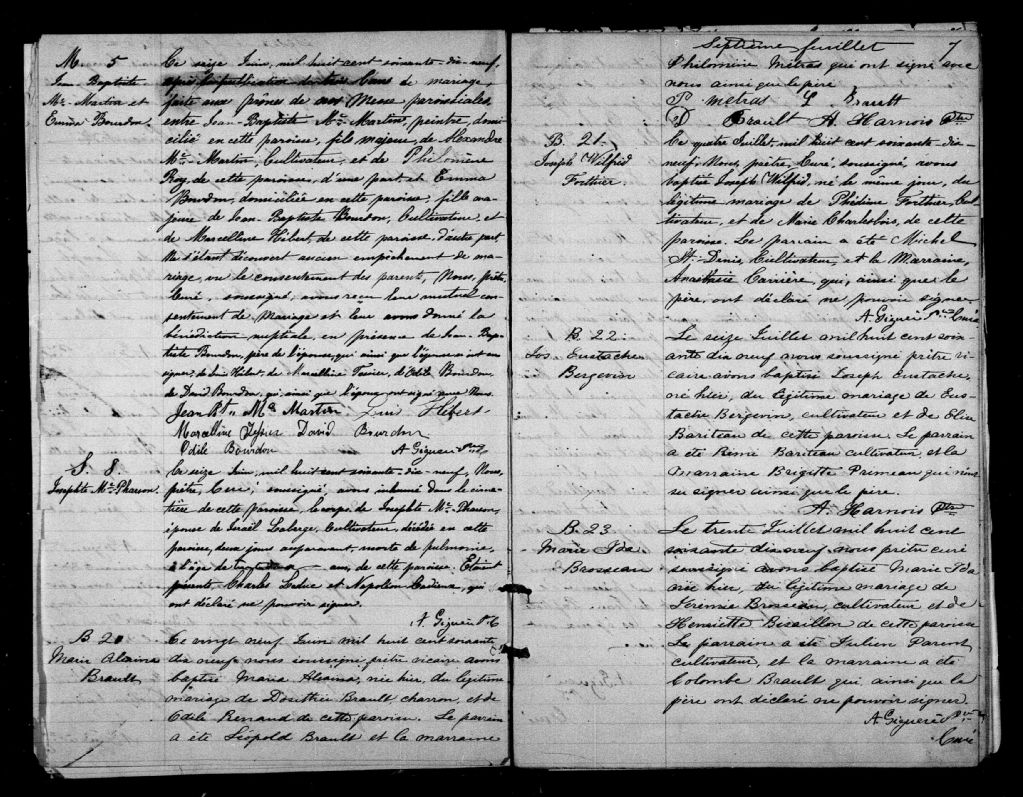 M. 5
Jean Baptiste
Mc. Martin et
Emma Bourdon.
Ce seize Juin, mil huit cent soixante-dix-neuf,
après la publication de trois bans de mariage,
faite aux prônes de nos Messes paroissiales,
entre Jean-Baptiste Mc. Martin, peintre, domi-
cilié en cette paroisse, fils majeur, de Alexandre
Mc. Martin, Cultivateur, et de Philomène
Roy, de cette paroisse, d'une part, et Emma
Bourdon, domiciliée en cette paroisse, fille ma-
jeure de Jean-Baptiste Bourdon, Cultivateur, et
de Marcelline Hébert, de cette paroisse, d'autre part,
Ne s'étant découvert aucun empêchement de ma-
riage, vu le consentement des parents, Nous, prêtre,
Curé, soussigné, avons reçu leur mutuel con-
sentement de Mariage et leur avons donné la
bénédiction nuptiale, en présence de Jean-Bap-
tiste Bourdon, père de l'épouse, qui ainsi que l'épouse n'ont su
signer, de Louis Hébert, de Marcelline, d'Odile Bourdon,
de David Bourdon, qui, ainsi que l'époux, ont signé avec Nous.
Jean Bte Mc Martin Louis Hébert
Marcelline David Bourdon
Odile Bourdon A Giguère Ptre
S. 8
Josephte Mc. Pherson
Ce seize Juin, mil huit cent soixante-dix-neuf, Nous,
prêtre, Curé, soussigné, avons inhumé dans le cime-
tière de cette paroisse, le corps de Josephte Mc. Pherson,
épouse de Israël Laberge, Cultivateur, décédée en cette
paroisse, deux jours auparavant, morte de pulmonie,
à l'âge de ans, de cette paroisse. Etaient
présents Charles Leduc et Napoléon, qui
ont déclaré ne pouvoir signer.
A Giguère Ptre
B. 20
Marie
Brault
Ce vingt neuf Juin mil huit cent soixante
dix neuf nous soussigné prêtre vicaire avons
baptisé Maria, née hier, du légitime
mariage de Dosithée Brault, charron, et de
Odile Renaud de cette paroisse. Le parrain
a été Léopold Brault et la marraine
Septième feuillet 7
Philomène Métras qui ont signé avec
nous ainsi que le père
P metras L Brault
D Brault A. Harnois Ptre
B. 21.
Joseph Wilfrid
Forthier.
Ce quatre Juillet, mil huit cent soixante-dix-
neuf, Nous, prêtre, Curé, soussigné, avons
baptisé Joseph Wilfrid, né le même jour, du
légitime mariage de Forthier, Cul-
tivateur, et de Marie Charlebois, de cette
paroisse. Le parrain a été Michel
St-Denis, Cultivateur, et la Marraine,
Anasthasie Carrière, qui, ainsi que le
père, ont déclaré ne pouvoir signer.
A. Giguère Ptre Curé
B. 22
Jos. Eustache
Bergevin
Le seize Juillet mil huit cent soix-
ante dix neuf nous soussigné prêtre vi-
caire avons baptisé Joseph Eustache,
né hier, du légitime mariage de Eus-
tache Bergevin, cultivateur et de Elise
Bariteau de cette paroisse. Le parrain
a été Rémi Bariteau cultivateur, et la
marraine Brigitte Primeau qui n'ont
su signer ainsi que le père.
A. Harnois Ptre
B. 23
Marie Ida
Brosseau
Le trente Juillet mil huit cent
soixante dix neuf nous prêtre curé
soussigné avons baptisé Marie Ida
née hier, du légitime mariage de
Jérémie Brosseau, cultivateur et de
Henriette Bisaillon de cette paroisse
Le parrain a été Julien Parent
cultivateur, et la marraine a été
Colombe Brault qui, ainsi que le
père ont déclaré ne pouvoir signer
A Giguère Ptre
Curé